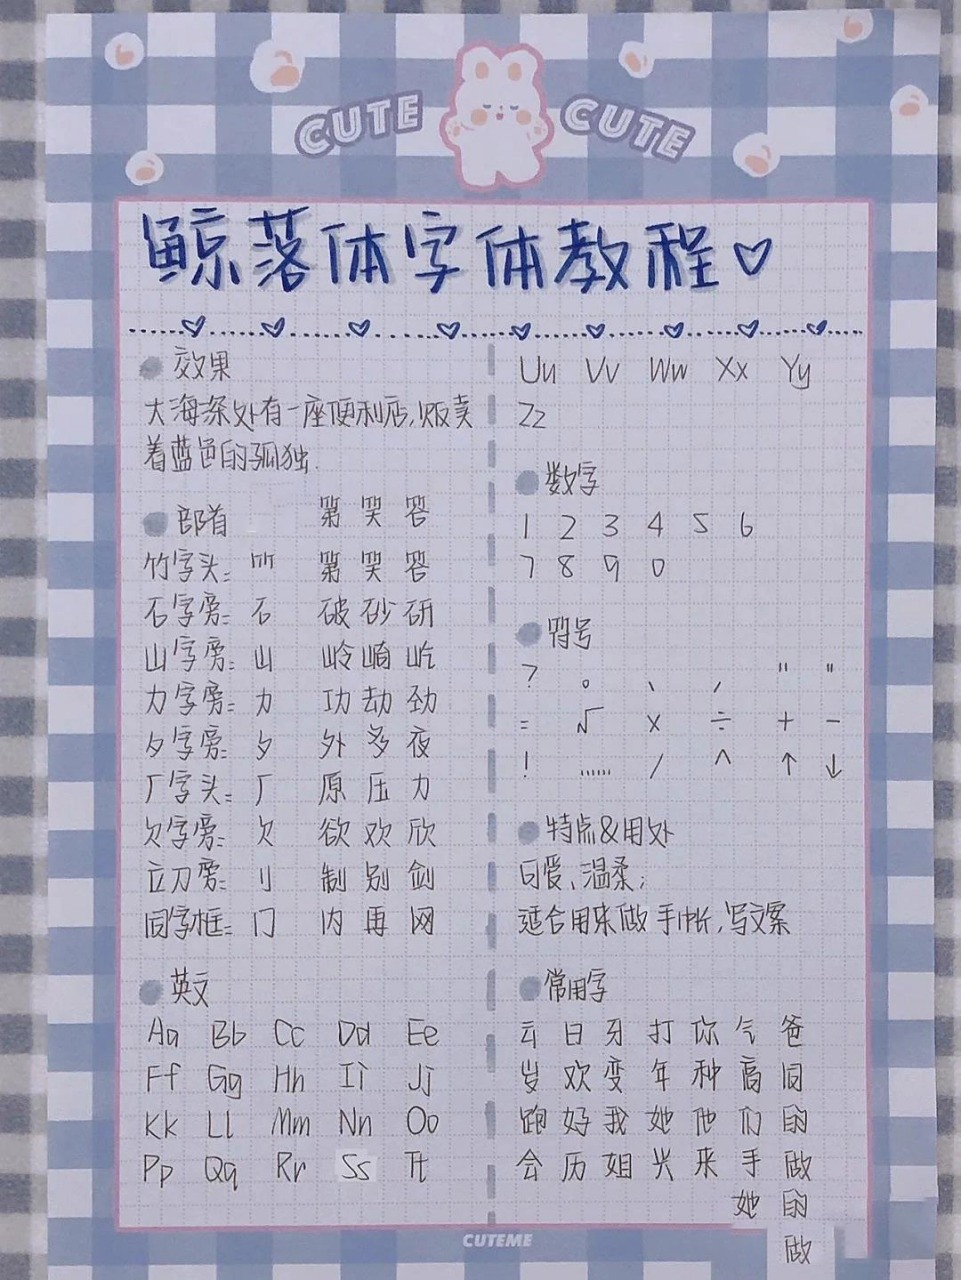 CUTE CUTE
鲸落体字体教程♡
效果
大海深处有一座便利店,贩卖
着蓝色的孤独.
部首
第 笑 答
竹字头: ⺮ 第 笑 答
石字旁: 石 破 砂 研
山字旁: 山 岭 崎 屹
力字旁: 力 功 劫 劲
夕字旁: 夕 外 多 夜
厂字头: 厂 原 压 力
欠字旁: 欠 欲 欢 欣
立刀旁: 刂 制 别 剑
同字框: 冂 内 再 网
英文
Aa Bb Cc Dd Ee
Ff Gg Hh Ii Jj
Kk Ll Mm Nn Oo
Pp Qq Rr Ss Tt
Uu Vv Ww Xx Yy
Zz
数字
1 2 3 4 5 6
7 8 9 0
符号
? 。 、 , " "
= √ × ÷ + −
! …… / ^ ↑ ↓
特点&用处
可爱、温柔;
适合用来做手帐,写文案
常用字
云 日 牙 打 你 气 爸
岁 欢 变 年 种 高 同
跑 好 我 她 他 们 的
会 历 姐 兴 来 手 做
她 的
做
CUTEME